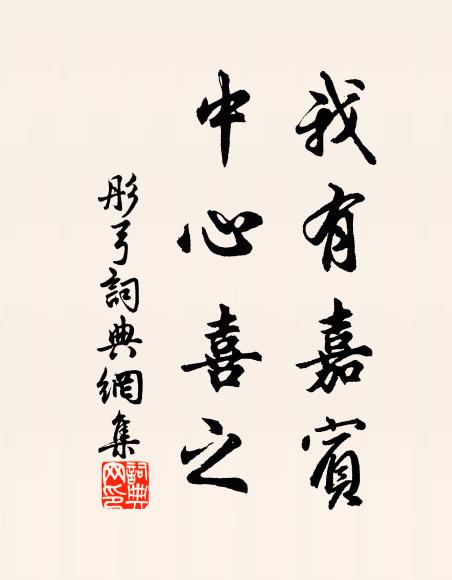 我有嘉賓
中心喜之
彤弓詞典網集
詞典網印